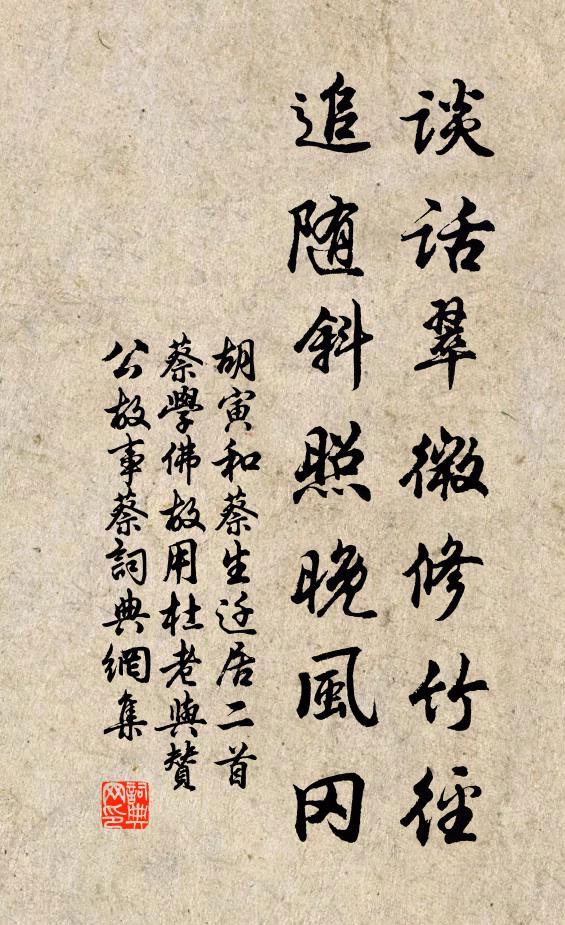 谈话翠微修竹径
追随斜照晚风冈
胡寅和蔡生迁居二首
蔡學佛故用杜老與贊
公故事蔡詞典網集
詞典网印